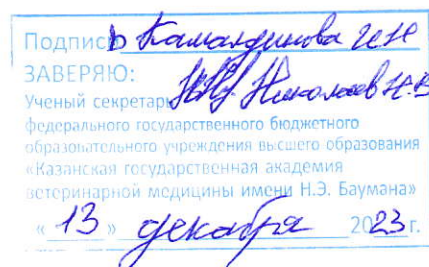 Подпись Камалдинова И.Н.
ЗАВЕРЯЮ:
Ученый секретарь Николаев Н.В
федерального государственного бюджетного
образовательного учреждения высшего образования
«Казанская государственная академия
ветеринарной медицины имени Н.Э. Баумана»
«13» декабря 2023 г.